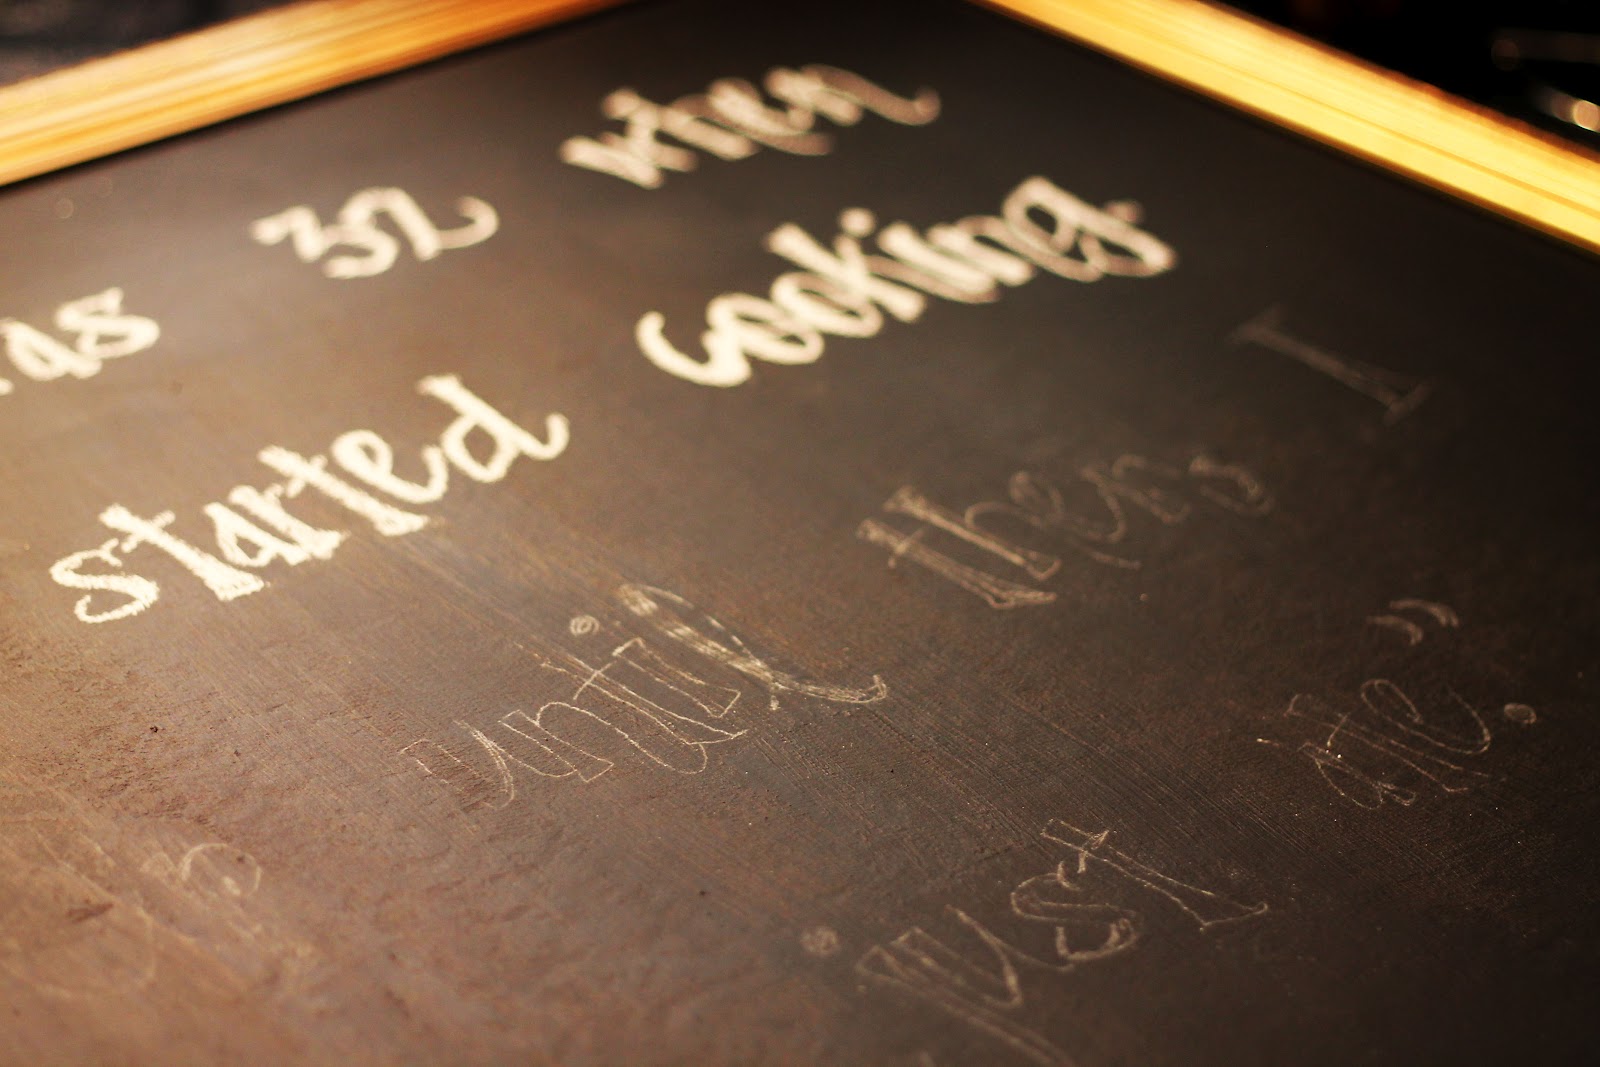 as 32 when
started cooking
until then, I
just ate.”